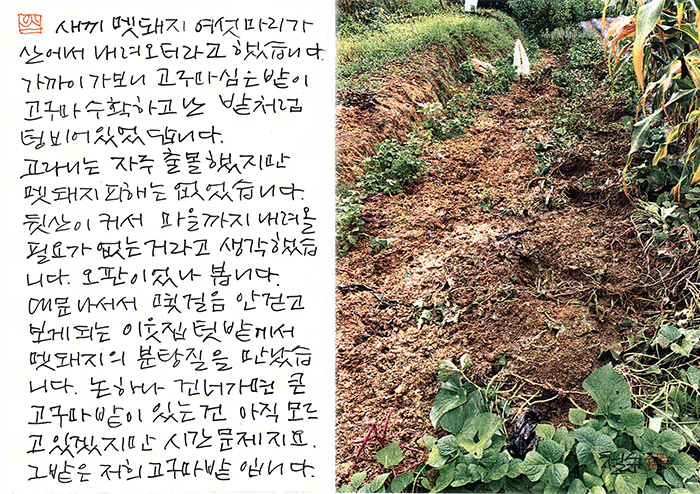 새끼 멧돼지 여섯마리가
산에서 내려오더라고 했습니다.
가까이 가보니 고구마 심은 밭이
고구마 수확하고 난 밭처럼
텅비어 있었답니다.
고라니는 자주 출몰했지만
멧돼지 피해는 없었습니다.
뒷산이 커서 마을까지 내려올
필요가 없는거라고 생각했습
니다. 오판이었나 봅니다.
대문 나서서 몇걸음 안걷고
보게되는 이웃집 텃밭에서
멧돼지의 분탕질을 만났습
니다. 논하나 건너가면 큰
고구마밭이 있는건 아직 모르
고있겠지만 시간문제지요.
그밭은 저희 고구마밭 입니다.